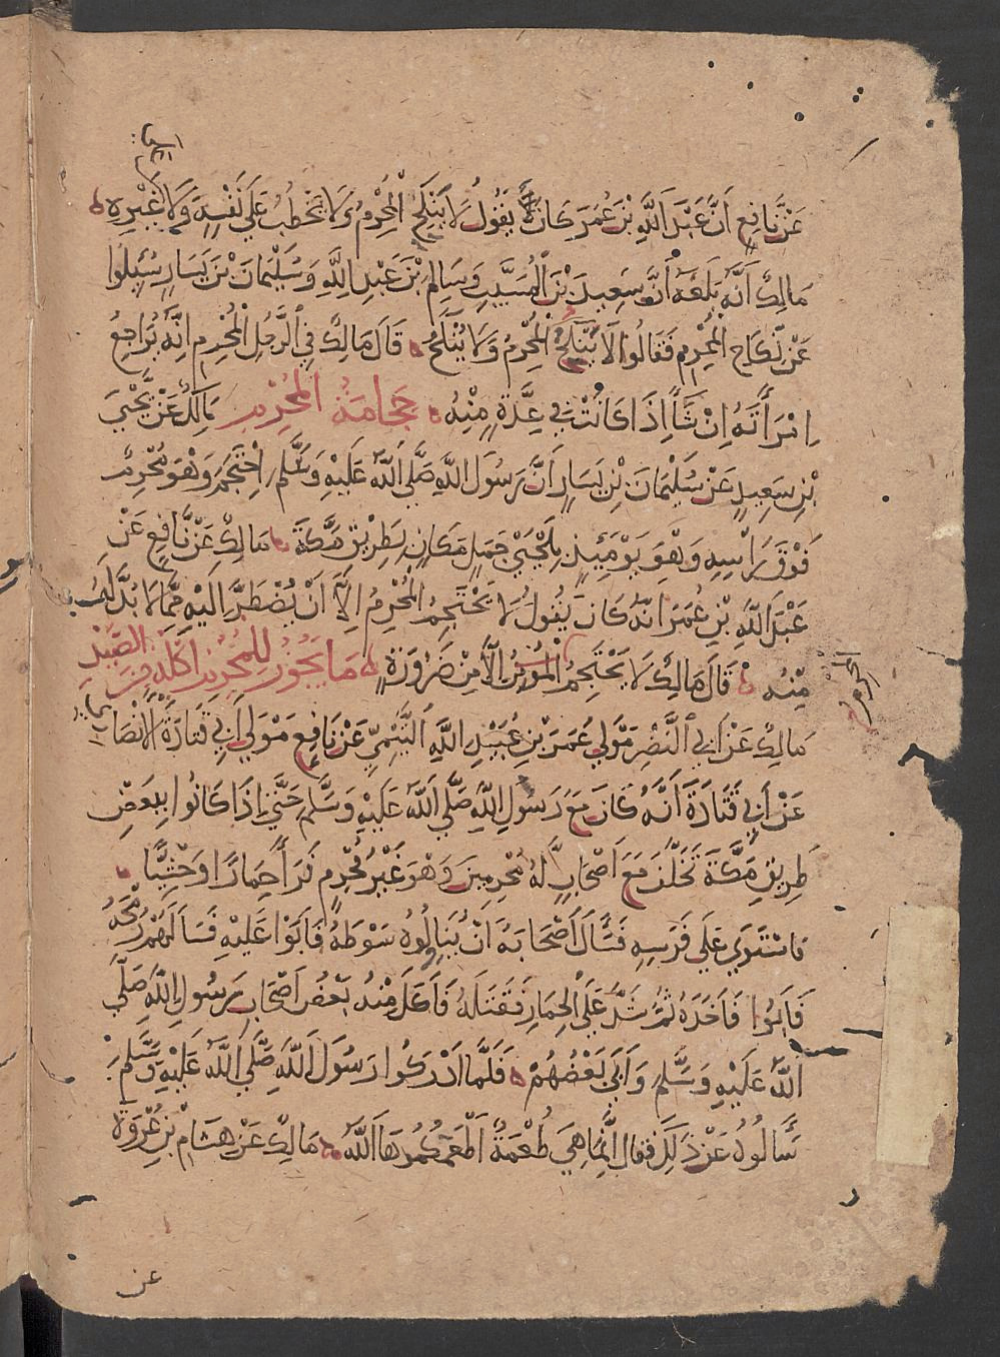 عَنْ نَافِعٍ أَنَّ عَبْدَ اللَّهِ بْنَ عُمَرَ كَانَ يَقُولُ لَا يَنْكِحُ الْمُحْرِمُ وَلَا يَخْطُبُ عَلَى نَفْسِهِ وَلَا غَيْرِهِ
مَالِكٌ أَنَّهُ بَلَغَهُ أَنَّ سَعِيدَ بْنَ الْمُسَيَّبِ وَسَالِمَ بْنَ عَبْدِ اللَّهِ وَسُلَيْمَانَ بْنَ يَسَارٍ سُئِلُوا
عَنْ نِكَاحِ الْمُحْرِمِ فَقَالُوا لَا يَنْكِحُ الْمُحْرِمُ وَلَا يُنْكِحُ قَالَ مَالِكٌ فِي الرَّجُلِ الْمُحْرِمِ إِنَّهُ يُرَاجِعُ
امْرَأَتَهُ إِنْ شَاءَ إِذَا كَانَتْ فِي عِدَّةٍ مِنْهُ حِجَامَةُ الْمُحْرِمِ مَالِكٌ عَنْ يَحْيَى
بْنِ سَعِيدٍ عَنْ سُلَيْمَانَ بْنِ يَسَارٍ أَنَّ رَسُولَ اللَّهِ صَلَّى اللَّهُ عَلَيْهِ وَسَلَّمَ احْتَجَمَ وَهْوَ مُحْرِمٌ
فَوْقَ رَأْسِهِ وَهْوَ يَوْمَئِذٍ بِلَحْيَيْ جَمَلٍ مَكَانٍ بِطَرِيقِ مَكَّةَ مَالِكٌ عَنْ نَافِعٍ عَنْ
عَبْدِ اللَّهِ بْنِ عُمَرَ أَنَّهُ كَانَ يَقُولُ لَا يَحْتَجِمُ الْمُحْرِمُ إِلَّا أَنْ يُضْطَرَّ إِلَيْهِ مِمَّا لَا بُدَّ لَهُ
مِنْهُ قَالَ مَالِكٌ لَا يَحْتَجِمُ الْمُحْرِمُ إِلَّا مِنْ ضَرُورَةٍ مَا يَجُوزُ لِلْمُحْرِمِ أَكْلُهُ مِنَ الصَّيْدِ
مَالِكٌ عَنْ أَبِي النَّضْرِ مَوْلَى عُمَرَ بْنِ عُبَيْدِ اللَّهِ التَّيْمِيِّ عَنْ نَافِعٍ مَوْلَى أَبِي قَتَادَةَ الْأَنْصَارِيِّ
عَنْ أَبِي قَتَادَةَ أَنَّهُ كَانَ مَعَ رَسُولِ اللَّهِ صَلَّى اللَّهُ عَلَيْهِ وَسَلَّمَ حَتَّى إِذَا كَانُوا بِبَعْضِ
طَرِيقِ مَكَّةَ تَخَلَّفَ مَعَ أَصْحَابٍ لَهُ مُحْرِمِينَ وَهْوَ غَيْرُ مُحْرِمٍ فَرَأَ حِمَارًا وَحْشِيًّا
فَاسْتَوَى عَلَى فَرَسِهِ فَسَأَلَ أَصْحَابَهُ أَنْ يُنَاوِلُوهُ سَوْطَهُ فَأَبَوْا عَلَيْهِ فَسَأَلَهُمْ رُمْحَهُ
فَأَبَوْا فَأَخَذَهُ ثُمَّ شَدَّ عَلَى الْحِمَارِ فَقَتَلَهُ فَأَكَلَ مِنْهُ بَعْضُ أَصْحَابِ رَسُولِ اللَّهِ صَلَّى
اللَّهُ عَلَيْهِ وَسَلَّمَ وَأَبَى بَعْضُهُمْ فَلَمَّا أَدْرَكُوا رَسُولَ اللَّهِ صَلَّى اللَّهُ عَلَيْهِ وَسَلَّمَ
سَأَلُوهُ عَنْ ذَلِكَ فَقَالَ إِنَّمَا هِيَ طُعْمَةٌ أَطْعَمَكُمُوهَا اللَّهُ مَالِكٌ عَنْ هِشَامِ بْنِ عُرْوَةَ
عن